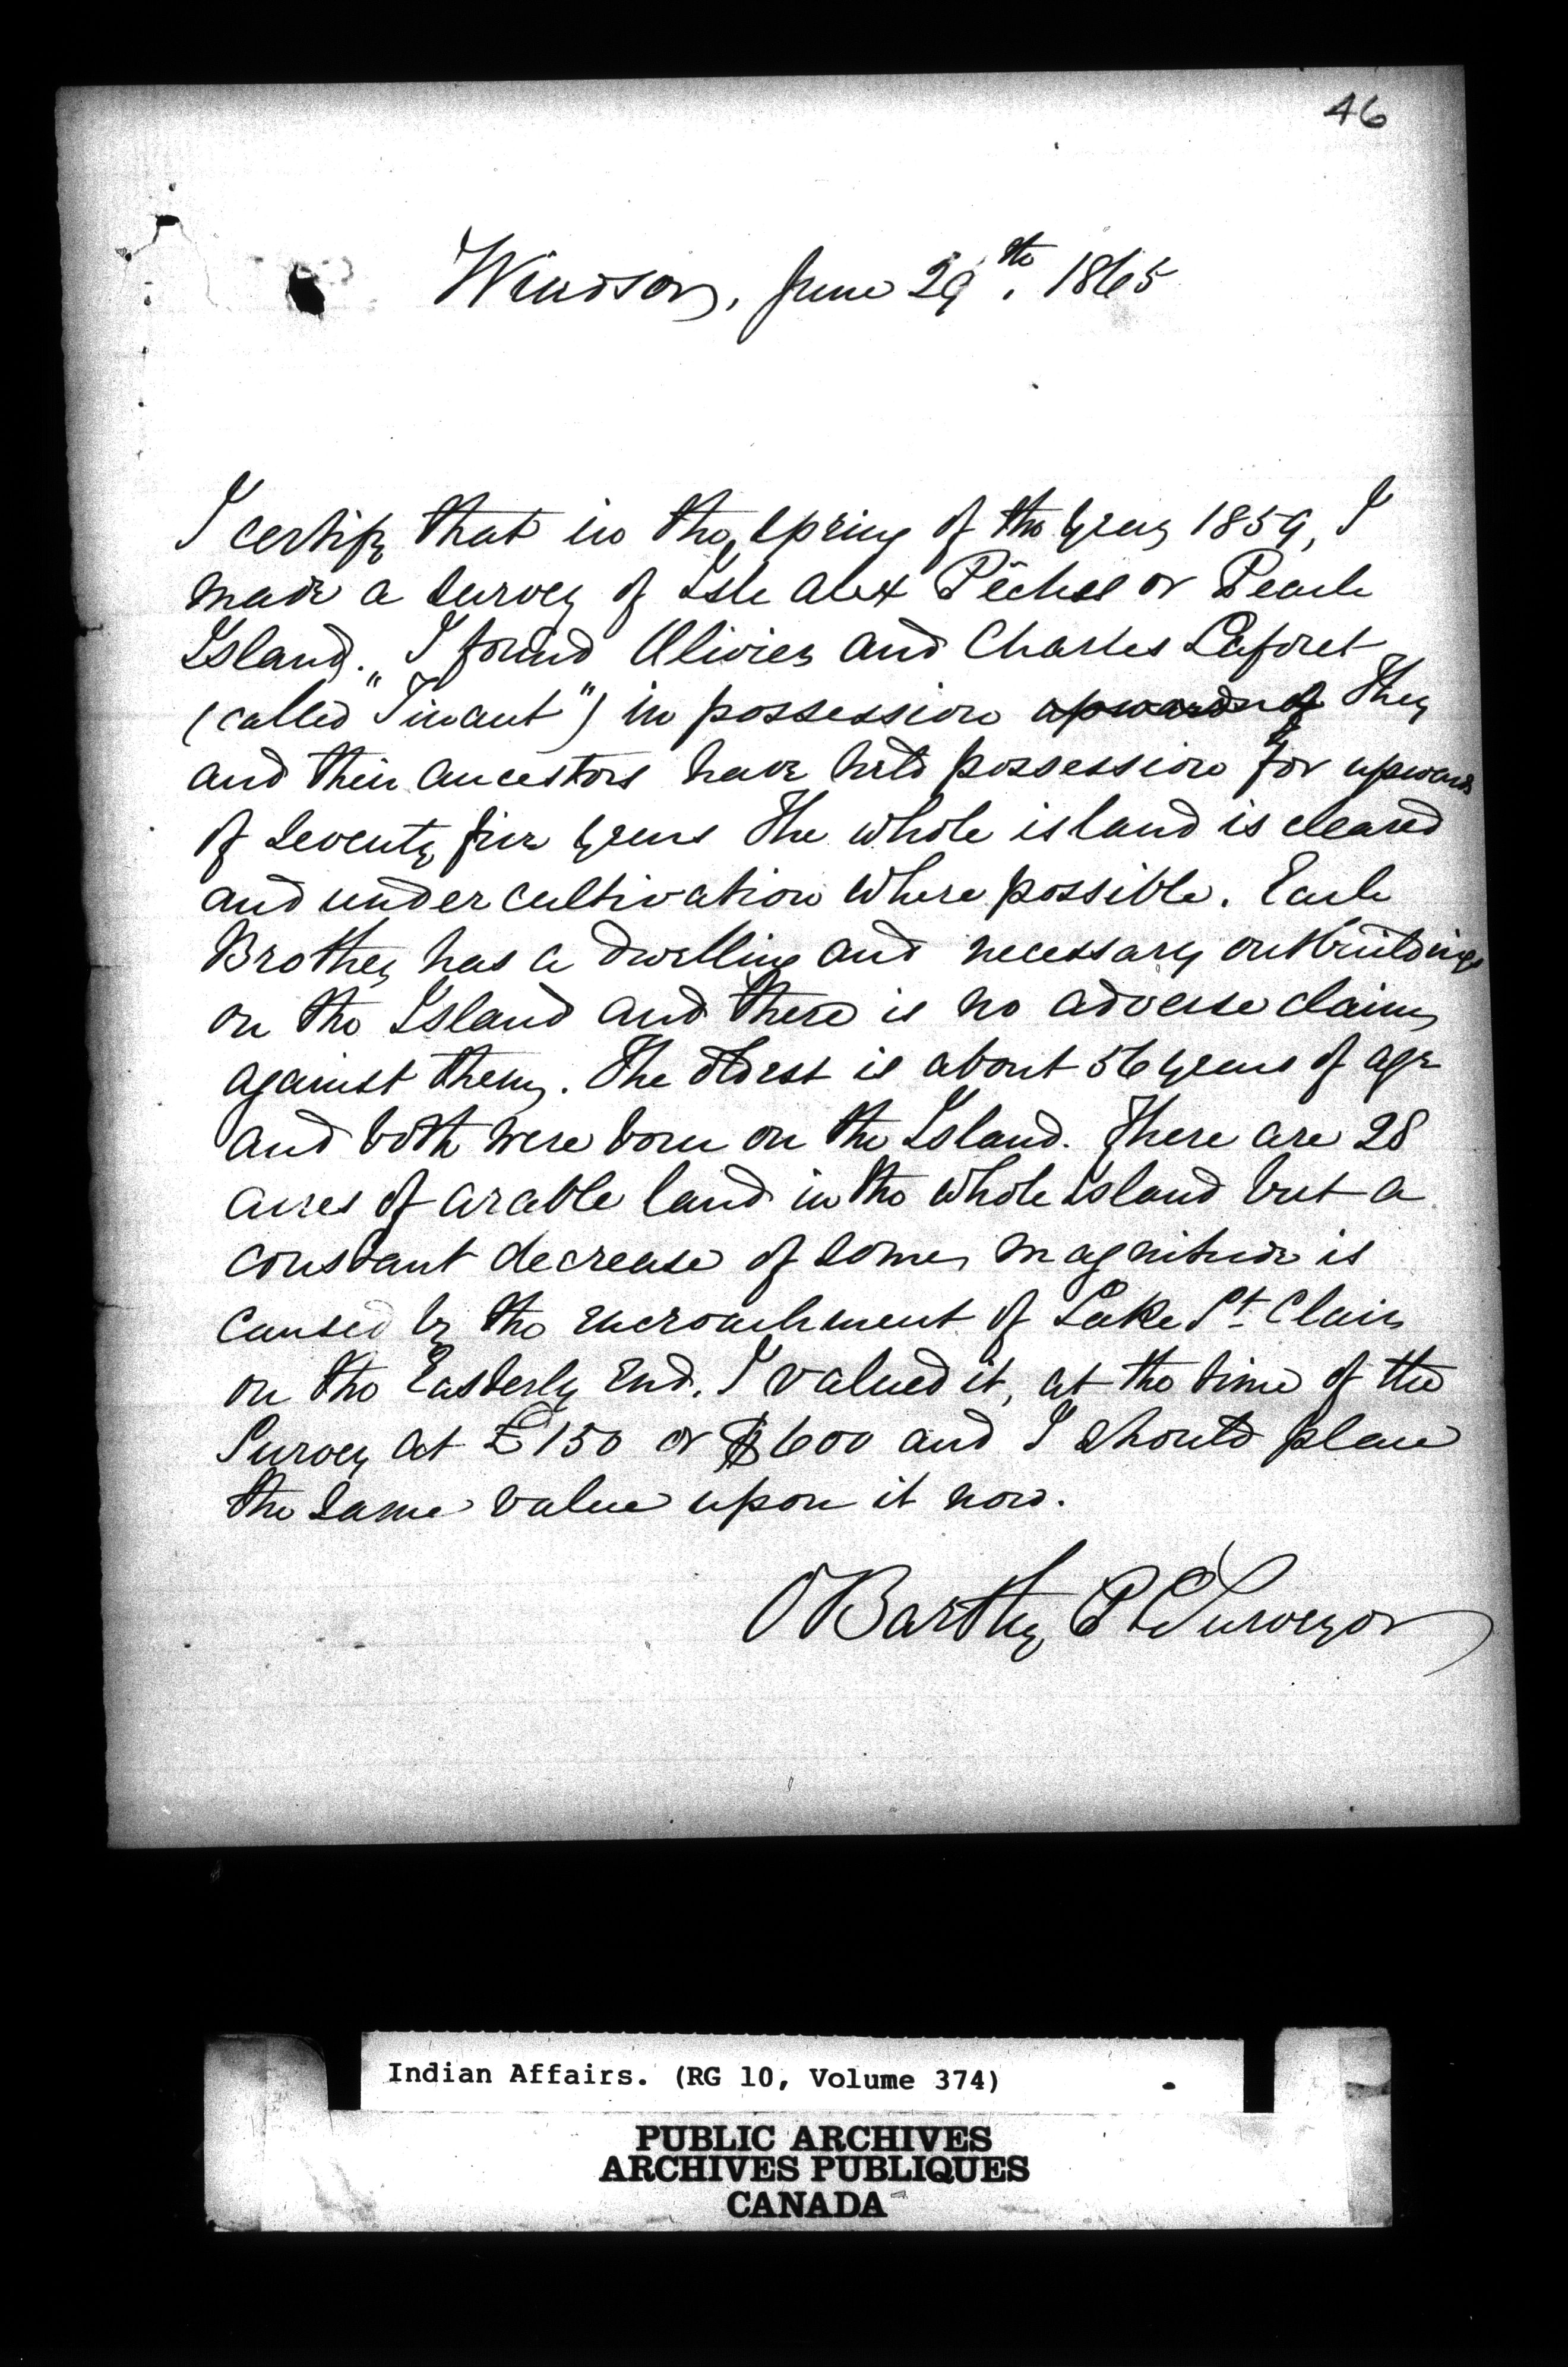 46
Windsor, June 29th. 1865
I certify that in the Spring of the year 1859, I
made a survey of Isle aux Pêches or Peach
Island. I found Olivier and Charles Laforet
(called "Tinant") in possession upwards of They
and their ancestors have held possession for upwards
of seventy five years The whole island is cleared
and under cultivation where possible. Each
Brother has a dwelling and necessary outbuildings
on the Island and there is no adverse claim
against them. The oldest is about 56 years of age
and both were born on the Island. There are 28
acres of arable land in the whole Island but a
constant decrease of some magnitude is
caused by the encroachment of Lake St. Clair
on the Easterly End. I valued it, at the time of the
Survey at £150 or $600 and I should place
the same value upon it now.
O Bartley P L Surveyor
Indian Affairs. (RG 10, Volume 374)
PUBLIC ARCHIVES
ARCHIVES PUBLIQUES
CANADA